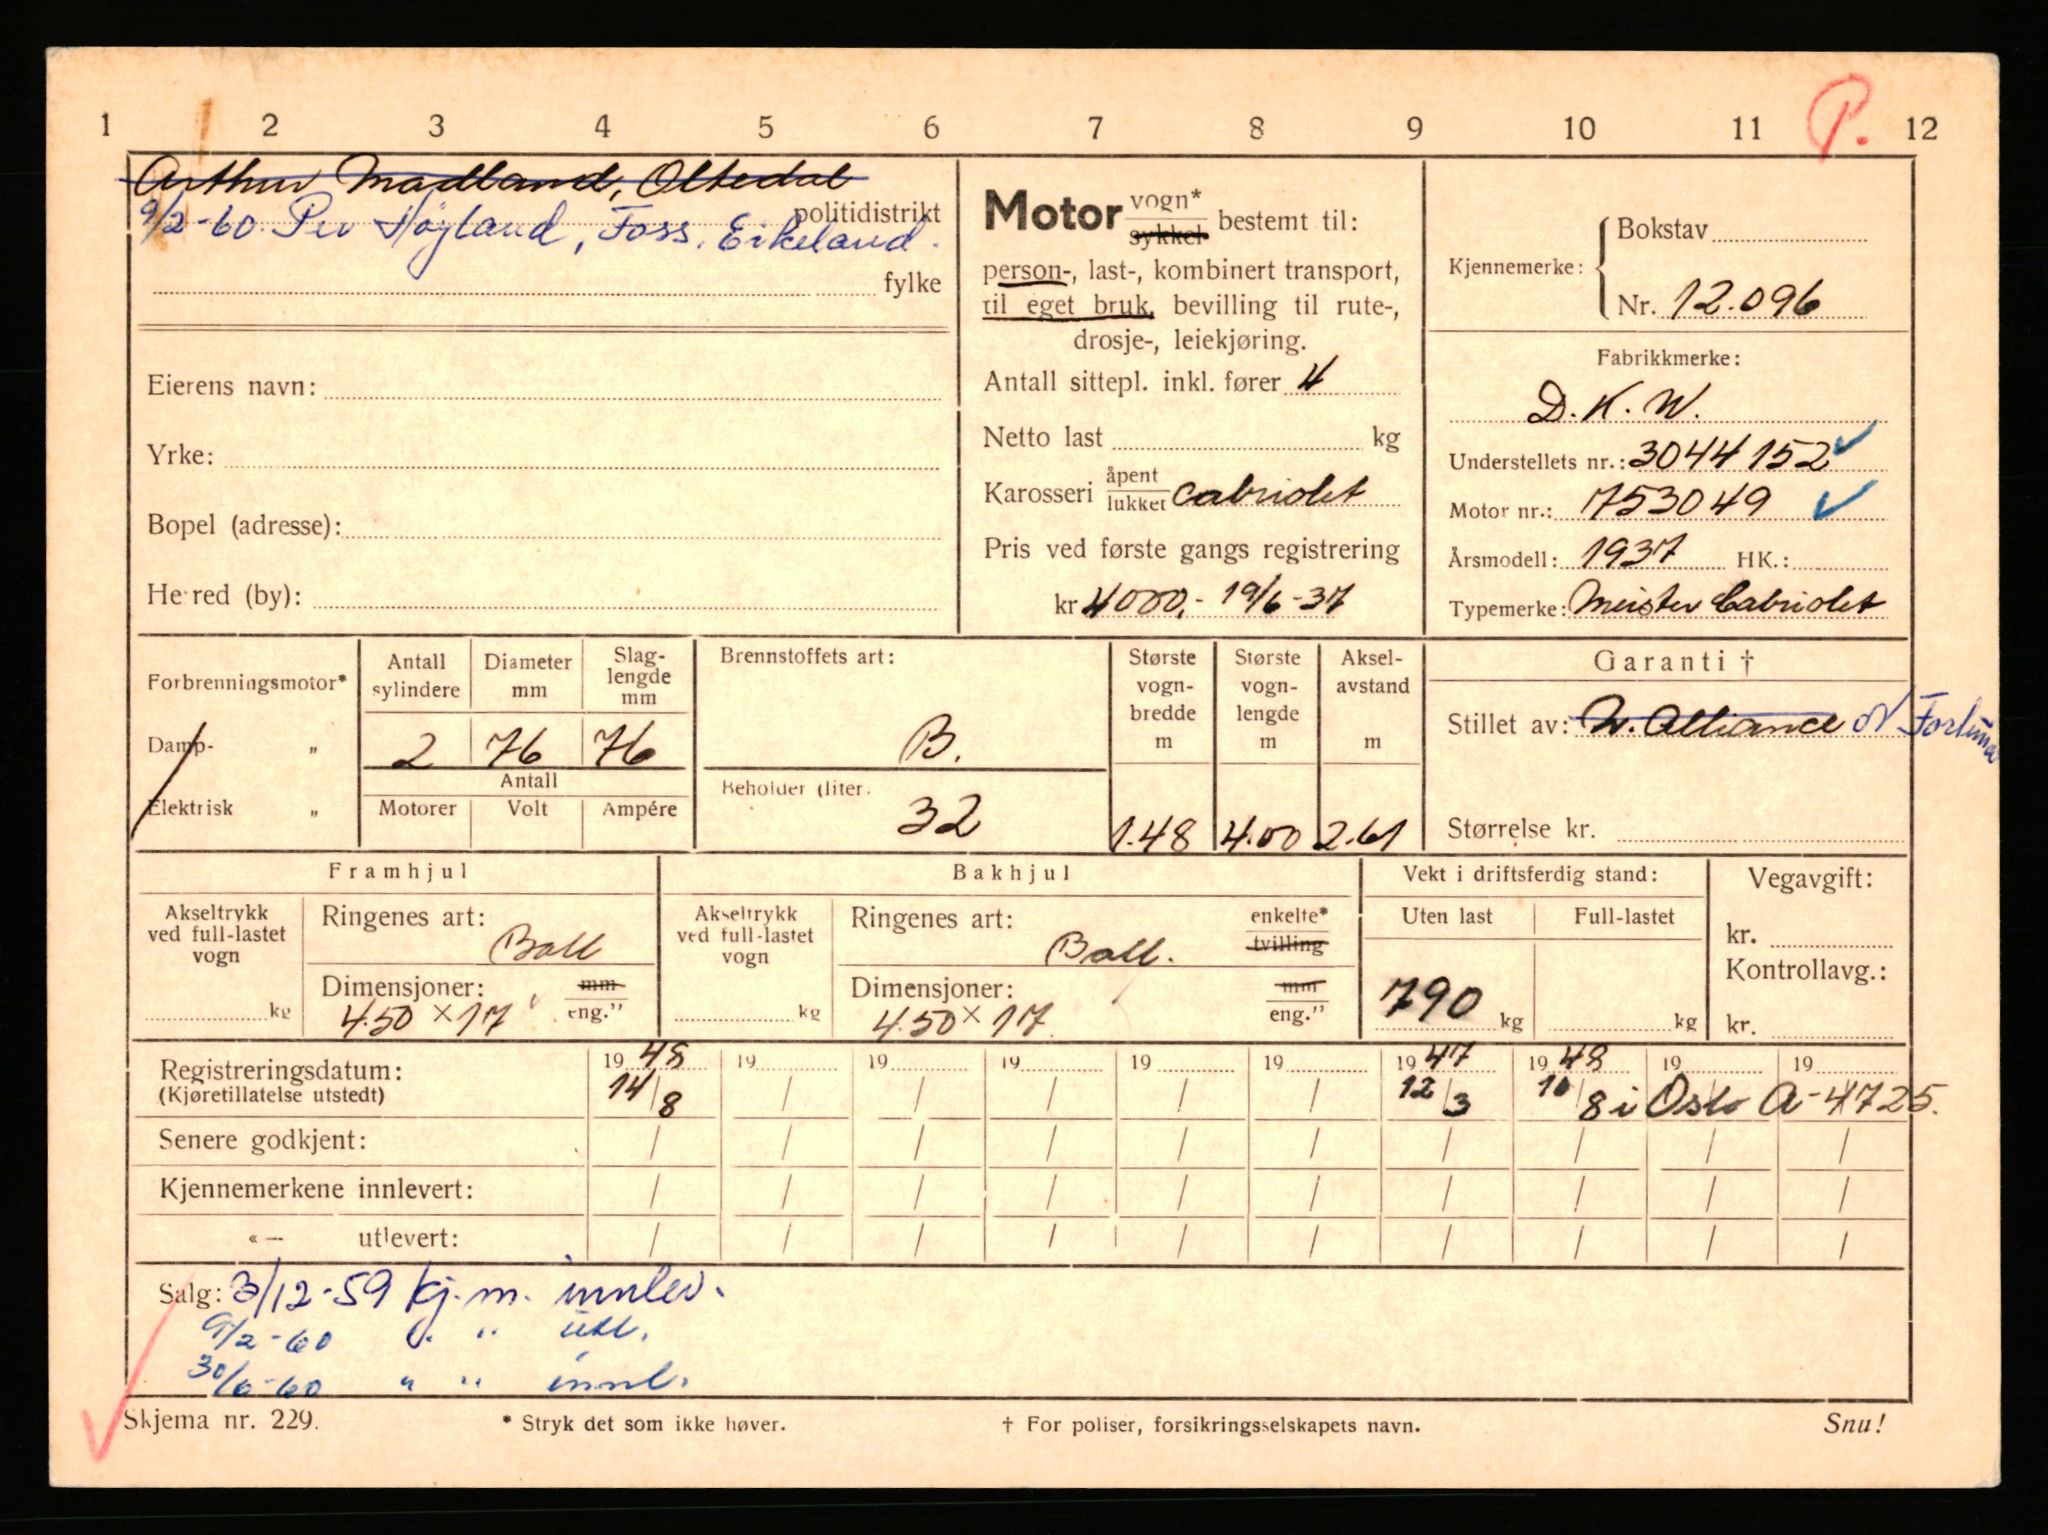 1 2 3 4 5 6 7 8 9 10 11 12
P.
Arthur Madland, Oltedal
politidistrikt
9/2-60 Per Höyland, Foss. Eikeland.
fylke
Eierens navn:
Yrke:
Bopel (adresse):
Herred (by):
Motor vogn* sykkel bestemt til:
person-, last-, kombinert transport,
til eget bruk, bevilling til rute-,
drosje-, leiekjøring.
Antall sittepl. inkl. fører 4
Netto last kg
Karosseri åpent lukket Cabriolet
Pris ved første gangs registrering
kr 4000,- 19/6-37
Kjennemerke:
Bokstav
Nr. 12.096
Fabrikkmerke:
D.K.W.
Understellets nr.: 3044152
Motor nr.: 753049
Årsmodell: 1937 HK.:
Typemerke: Meister Cabriolet
Forbrenningsmotor*
Damp- „
Elektrisk „
Antall sylindere
2
Diameter mm
76
Slag-lengde mm
76
Antall
Motorer Volt Ampére
Brennstoffets art:
B.
Beholder (liter.
32
Største vogn-bredde m
1.48
Største vogn-lengde m
4.00
Aksel-avstand m
2.61
Garanti †
Stillet av: N. Alliance N Fortuna
Størrelse kr.
Framhjul
Akseltrykk ved full-lastet vogn
kg
Ringenes art:
Ball
Dimensjoner: mm eng."
4.50 × 17
Bakhjul
Akseltrykk ved full-lastet vogn
kg
Ringenes art: enkelte* tvilling
Ball.
Dimensjoner: mm eng."
4.50 × 17
Vekt i driftsferdig stand:
Uten last Full-lastet
790 kg kg
Vegavgift:
kr.
Kontrollavg.:
kr.
Registreringsdatum: 19 48 19 19 19 19 19 19 47 19 48 19 19
(Kjøretillatelse utstedt) 14/8 / / / / / 12/3 10/8 i Oslo A-4725.
Senere godkjent: / / / / / / / / / /
Kjennemerkene innlevert: / / / / / / / / / /
«— utlevert: / / / / / / / / / /
Salg: 3/12-59 kj.m. innlev.
9/2-60 " " utl.
30/6-60 " " innl.
Skjema nr. 229. * Stryk det som ikke høver. † For poliser, forsikringsselskapets navn. Snu!